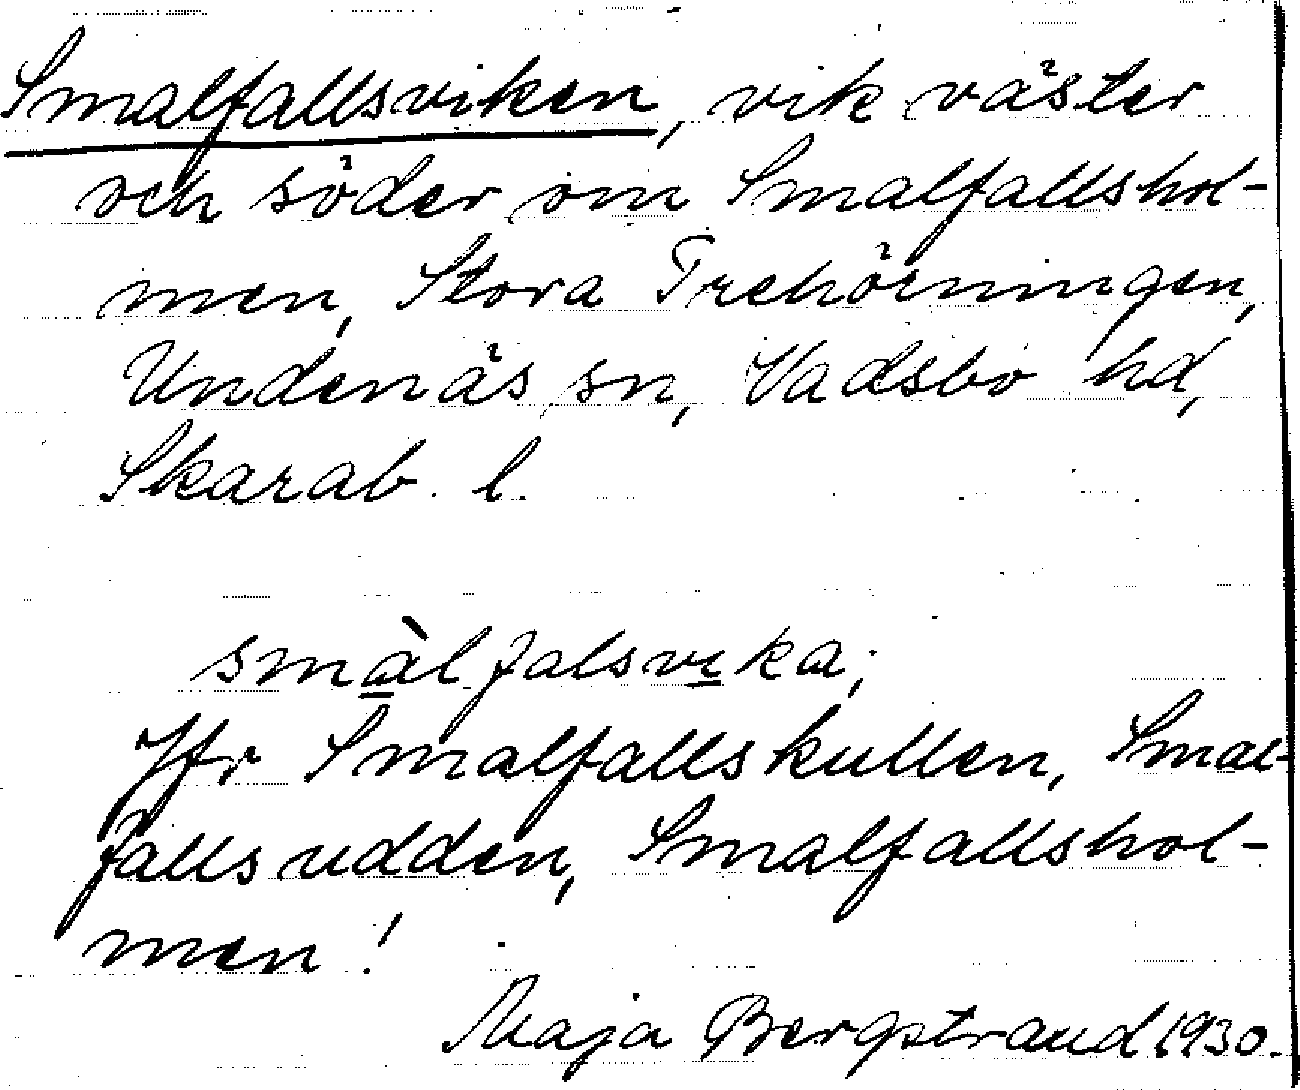 Smalfallsviken, vik väster
och söder om Smalfallshol-
men, Stora Trehörningen,
Undenäs sn, Vadsbo hd,
Skarab. l.
smàlfalsvika;
Jfr Smalfallskullen, Smal-
fallsudden, Smalfallshol-
men!
Maja Bergstrand 1930.